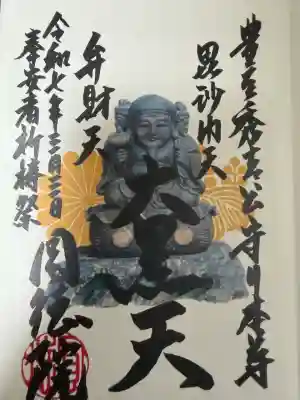 豊臣秀吉公守り本尊
毘沙門天
大黒天
弁財天
令和七年三月三日
祈祷祭
圓徳院